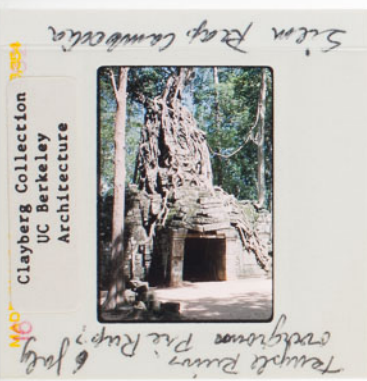 Siem Reap, Cambodia
Clayberg Collection
UC Berkeley
Architecture
Temple Ruins
overgrown Pre Rup?
6 July